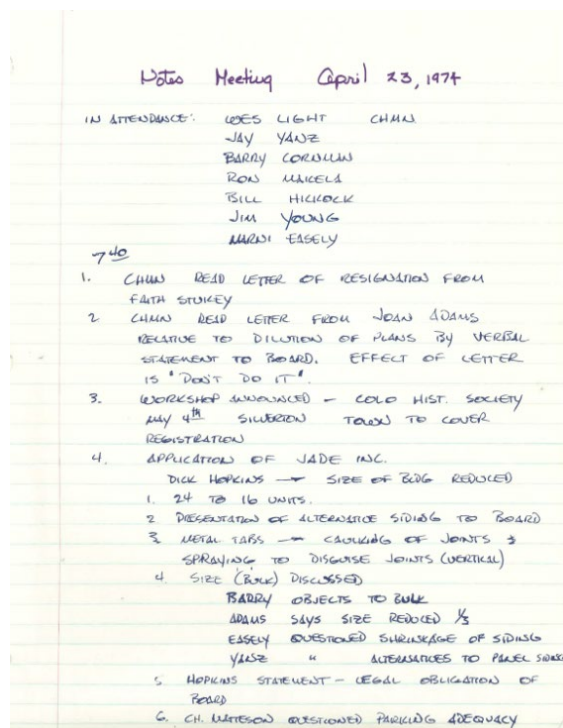 Notes Meeting April 23, 1974
IN ATTENDANCE: WES LIGHT CHMN
JAY YANZ
BARRY CORNMAN
RON MAKELA
BILL HICKOCK
JIM YOUNG
MARNI EASELY
7 40
1. CHMN READ LETTER OF RESIGNATION FROM
FAITH STUKEY
2 CHMN READ LETTER FROM JOAN ADAMS
RELATIVE TO DILUTION OF PLANS BY VERBAL
STATEMENT TO BOARD. EFFECT OF LETTER
IS "DON'T DO IT".
3. WORKSHOP ANNOUNCED – COLO HIST. SOCIETY
MAY 4th SILVERTON TOWN TO COVER
REGISTRATION
4. APPLICATION OF JADE INC.
DICK HOPKINS → SIZE OF BLDG REDUCED
1. 24 TO 16 UNITS.
2 PRESENTATION OF ALTERNATIVE SIDING TO BOARD
3 METAL TABS → CAULKING OF JOINTS &
SPRAYING TO DISGUISE JOINTS (VERTICAL)
4 SIZE (BULK) DISCUSSED
BARRY OBJECTS TO BULK
ADAMS SAYS SIZE REDUCED 1/3
EASELY QUESTIONED SHRINKAGE OF SIDING
YANSZ " ALTERNATIVES TO PANEL SIDING
5 HOPKINS STATEMENT – LEGAL OBLIGATION OF
BOARD
6. CH. MATTESON QUESTIONED PARKING ADEQUACY